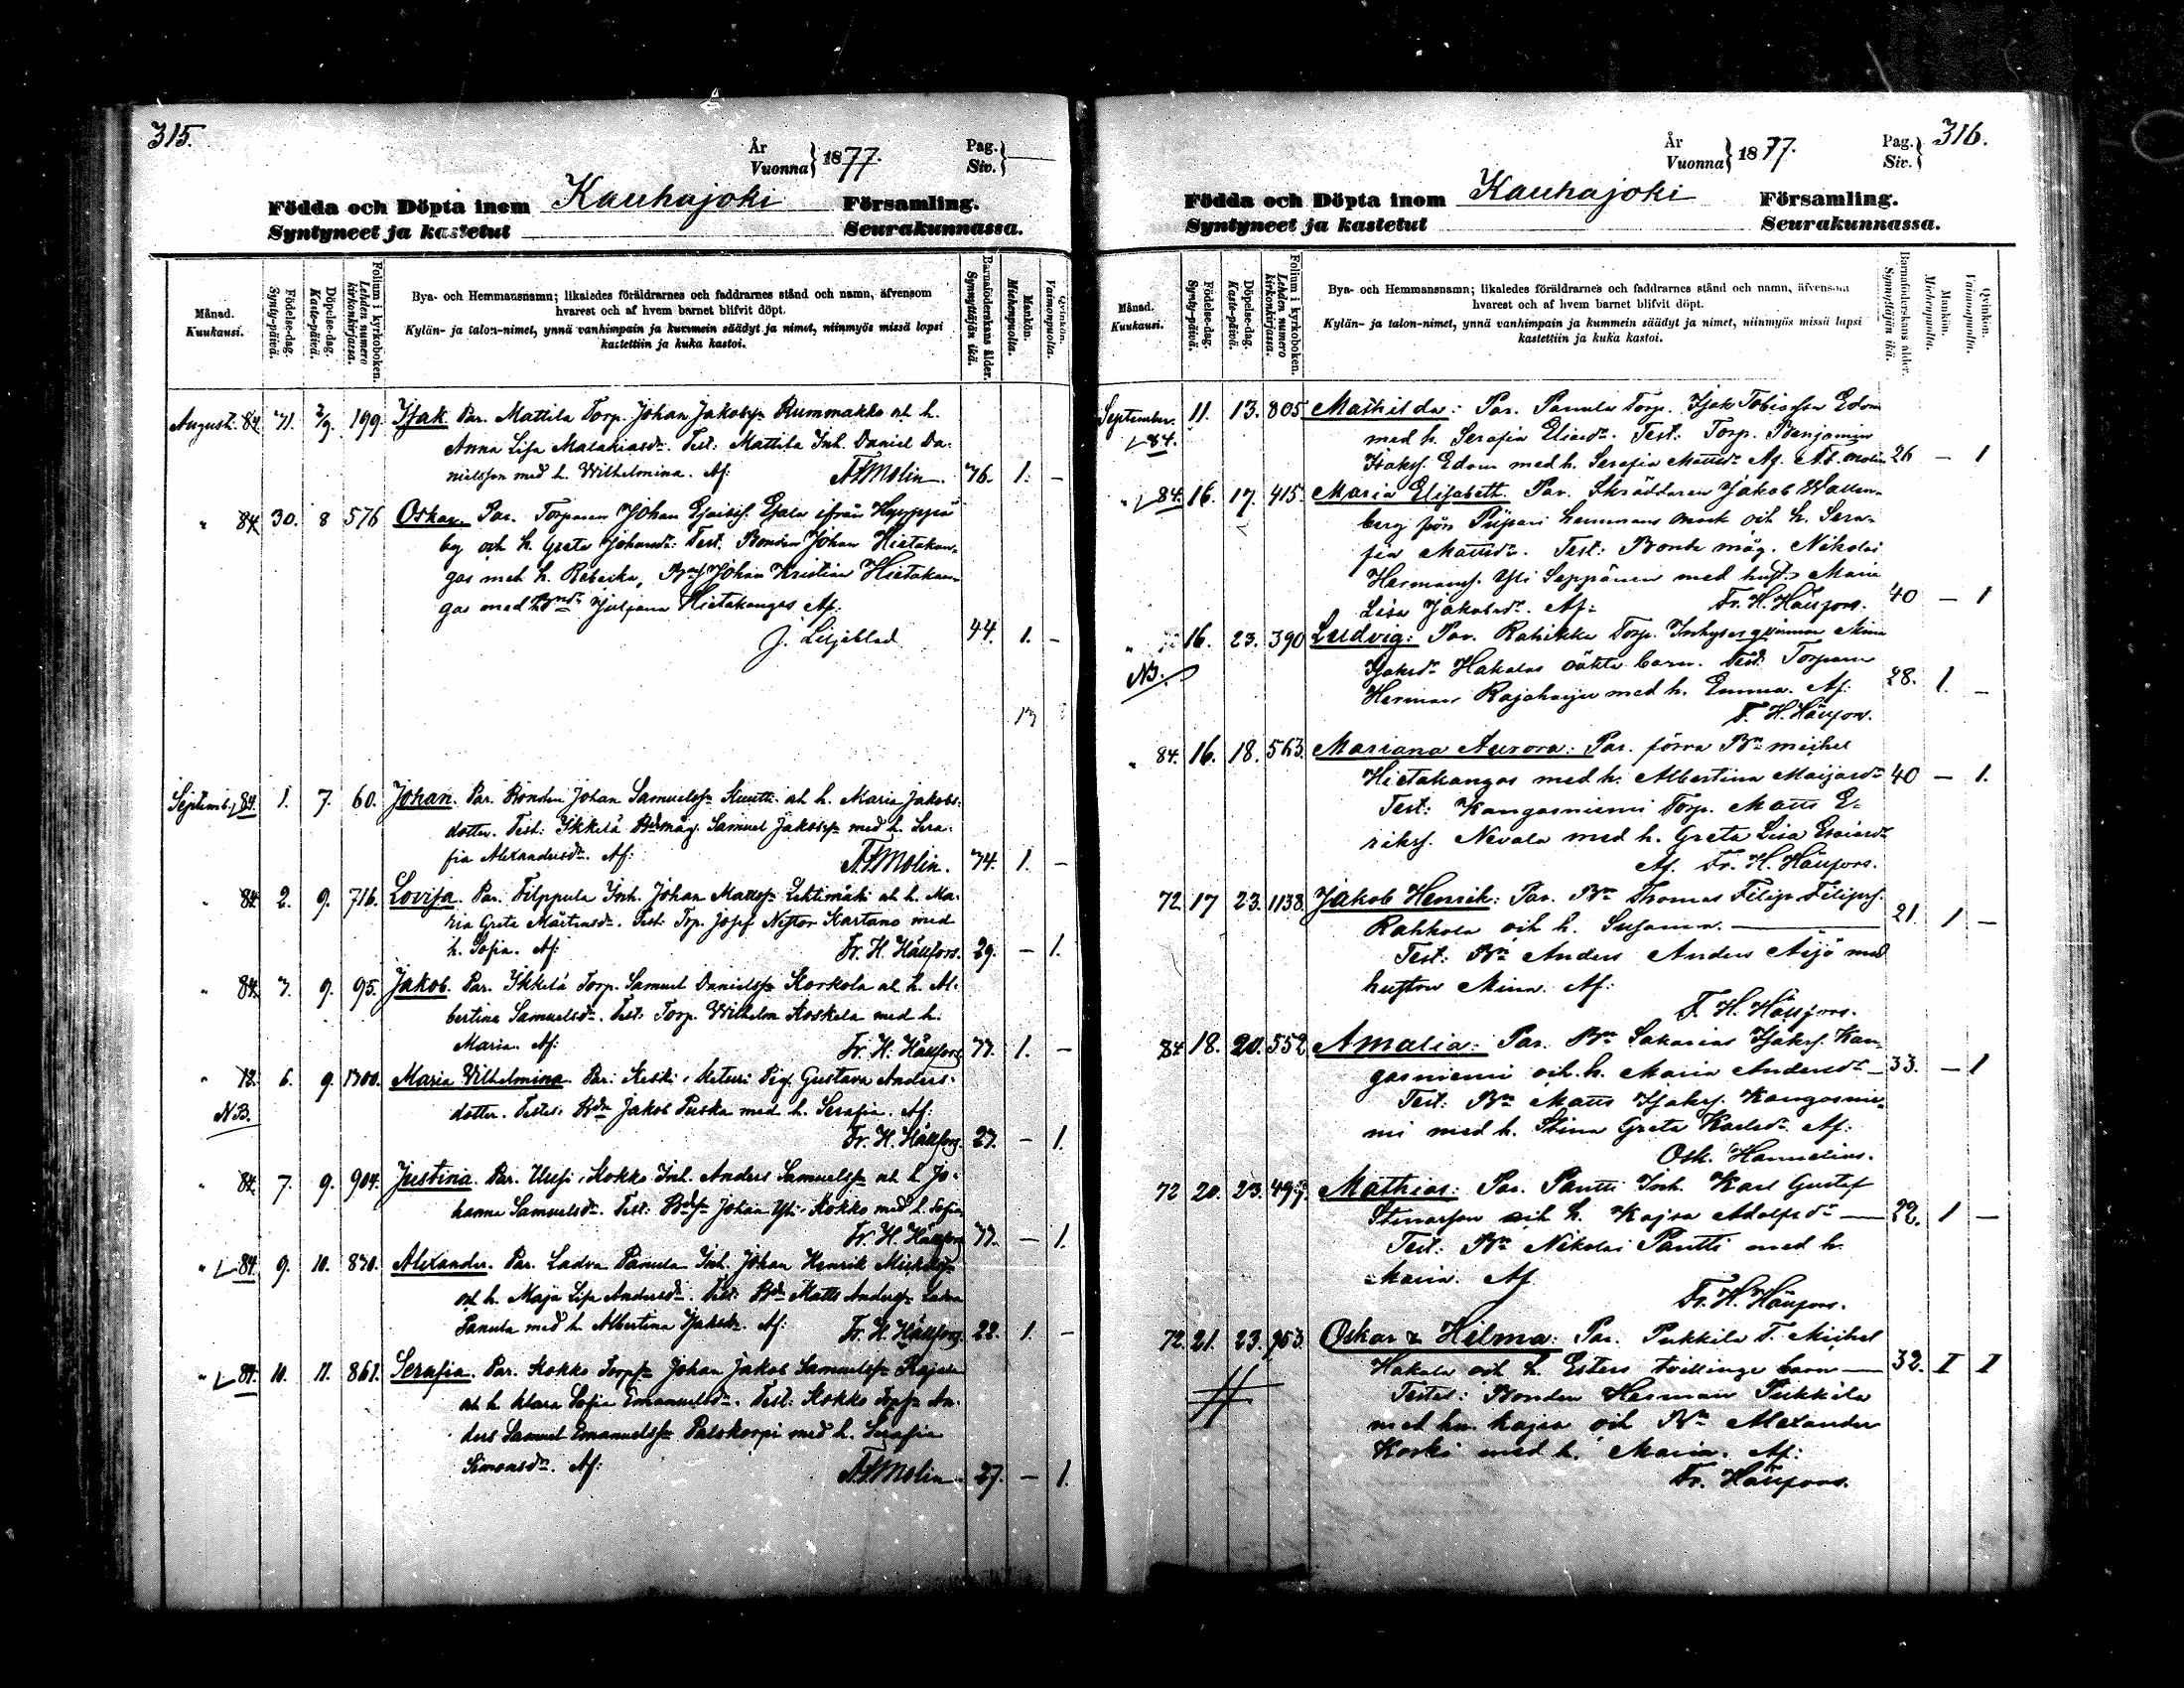 315.
År
Vuonna } 1877.
Pag.
Siv. }
Födda och Döpta inom Kauhajoki Församling.
Syntyneet ja kastetut Seurakunnassa.
Månad.
Kuukausi.
Födelse-dag.
Synty-päivä.
Döpelse-dag.
Kaste-päivä.
Folium i kyrkoboken.
Lehden numero kirkonkirjassa.
Bya- och Hemmansnamn; likaledes föräldrarnes och faddrarnes stånd och namn, äfvensom
hvarest och af hvem barnet blifvit döpt.
Kylän- ja talon-nimet, ynnä vanhimpain ja kummein säädyt ja nimet, niinmyös missä lapsi
kastettiin ja kuka kastoi.
Barnaföderskans ålder.
Synnyttäjän ikä.
Mankön.
Miehenpuolia.
Qvinkön.
Vaimonpuolia.
August. 84. 199. Isak Par. Mattila Torp. Johan Jakobsn Rummakko och h.
Anna Lisa Malakiasdr. Test: Mattila Inh. Daniel Da-
nielsson med h. Wilhelmina. Af: Molin. 1. -
" 84 30. 8 576 Oskar. Par. Torparen Johan Esaiasf. från Hyyppä
by och h. Greta Johansdr: Test. Bonden Johan Hietakan-
gas med h. Johan Kristian Hietakan-
gas med Juliana Hietakangas Af:
J. Liljeblad 44. 1. -
13
Septemb. 84. 1. 7. 60. Johan. Par. Bonden Johan Samuelsn och h. Maria Jakobs-
dotter. Test: Ikkelä Bdmåg. Samuel Jakobsn med h. Sera-
fia Alexandersdr. Af: Molin. 1. -
" 84 2. 9. 716. Lovisa. Par. Filppula Inh. Johan Mattsn Lehtimäki och h. Ma-
ria Greta Mårtensdr. Test: Trp. Josef Nestor Kartano med
h. Sofia. Af: Fr. H. Hällfors. 29. - 1.
" 84. 9. 95. Jakob. Par. Ikkelä Torp. Samuel Danielsn Korkola och h. Al-
bertina Samuelsdr. Test: Torp. Wilhelm Koskela med h.
Maria. Af: Fr. H. Hällfors 1. -
" 72. 6. 9. 1300. Maria Wilhelmina. Par: Keski, Pig. Gustava Anders-
N.B.
dotter. Testes: Bdn Jakob Puska med h. Serafia. Af:
Fr. H. Hällfors. 27. - 1.
" 84. 7. 9. 904. Justina. Par. Uusi, Kokko Inh. Anders Samuelsn och h. Jo-
hanna Samuelsdr. Test: Johan Yli-Kokko med h. Sofia
Fr. H. Hällfors - 1.
" 84. 9. 10. 830. Alexander. Par. Ladva Panula Inh. Johan Henrik Michelsn
och h. Maja Lisa Andersdr. Test: Bdn Matts Andersn Ladva
Panula med h. Albertina Isaksdr. Af: Fr. H. Hällfors. 22. 1. -
" 84. 10. 11. 861. Serafia. Par. Kokko Johan Jakob Samuelsn
och h. Klara Sofia Emanuelsdr. Test: Kokko An-
ders Samuel Emanuelsn med h. Serafia
Simonsdr. Af: Molin. 27. - 1.
316.
År
Vuonna } 1877.
Pag.
Siv. }
Födda och Döpta inom Kauhajoki Församling.
Syntyneet ja kastetut Seurakunnassa.
Månad.
Kuukausi.
Födelse-dag.
Synty-päivä.
Döpelse-dag.
Kaste-päivä.
Folium i kyrkoboken.
Lehden numero kirkonkirjassa.
Bya- och Hemmansnamn; likaledes föräldrarnes och faddrarnes stånd och namn, äfvensom
hvarest och af hvem barnet blifvit döpt.
Kylän- ja talon-nimet, ynnä vanhimpain ja kummein säädyt ja nimet, niinmyös missä lapsi
kastettiin ja kuka kastoi.
Barnaföderskans ålder.
Synnyttäjän ikä.
Mankön.
Miehenpuolia.
Qvinkön.
Vaimonpuolia.
September. 11. 13. 805 Mathilda: Par. Panula Torp. Isak Tobiasson Edom
84.
med h. Serafia Eliasdr. Test: Torp. Benjamin
Isaksf. Edom med h. Serafia Mattsdr Af. Molin 26 - 1
" 84. 16. 17. 415. Maria Elisabeth. Par. Skräddaren Jakob Wallen-
berg från Piipari hemmans mark och h. Sera-
fia Mattsdr. Test: Bonde måg. Nikolai
Hermansf. Yli Seppänen med hust. Maria
Lisa Jakobsdr. Af: Fr. H. Hällfors. 40 - 1
" 16. 23. 390 Ludvig: Par. Rahikka Torp. Inhyses qvinnan Mina
NB.
Isaksdr Hakalas oäkta barn. Test: Torparen
Herman Rajaharju med h. Emma. Af: 28. 1. -
F. H. Hällfors.
" 84. 16. 18. 563. Mariana Aurora: Par. förra Bn Michel
Hietakangas med h. Albertina 40 - 1.
Test: Kangasniemi Torp. Matts E-
riksf. Nevala med h. Greta Lisa Esaiasdr
Af. Fr. H. Hällfors.
72. 17 23. 1138 Jakob Henrik: Par. Bn Thomas Filip Filipsf.
Rahkola och h. Susanna. 21. 1 -
Test: Bn Anders Anders Äijö med
hustru Mina. Af:
F. H. Hällfors.
84 18. 20. 552 Amalia: Par. Bn Sakarias Isaksf. Kan-
gasniemi och h. Maria Andersdr 33. - 1
Test: Bn Matts Isaksf. Kangasnie-
mi med h. Stina Greta Karlsdr. Af:
Osk. Hannelius.
72 20. 23. Mathias: Par. Pantti Inh. Karl Gustaf
och h. Kajsa Adolfsdr 22. 1 -
Test: Bn Nikolai Pantti med h.
Maria. Af
Fr. H. Hällfors.
72. 21. 23. 953. Oskar & Hilma: Par. Pukkila T. Michel
Hakala och h. Esters tvillinge barn 32. I I
Testes: Bonden Herman Pukkila
med hu. Kajsa och Bn Alexander
Koski med h. Maria. Af:
Fr. Hällfors.